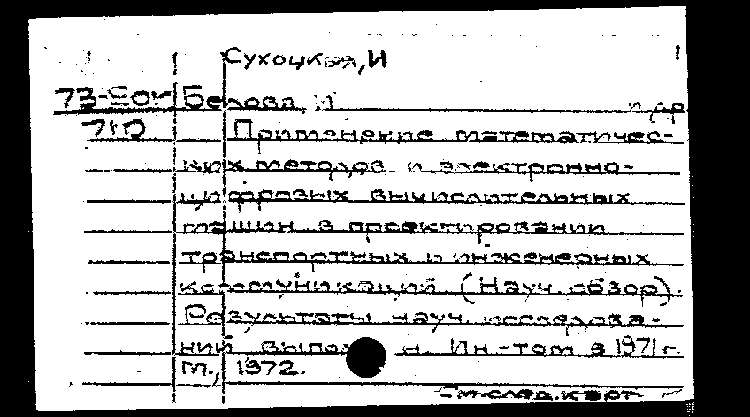 Сухоцкая, И
Белова, И и др
Применение математичес-
ких методов и электронно-
цифровых вычислительных
машин в проектировании
транспортных и инженерных
коммуникаций (Науч. обзор).
Результаты науч. исследова-
ний, н. Ин-том в 1971 г.
М., 1972.
См. след. карт